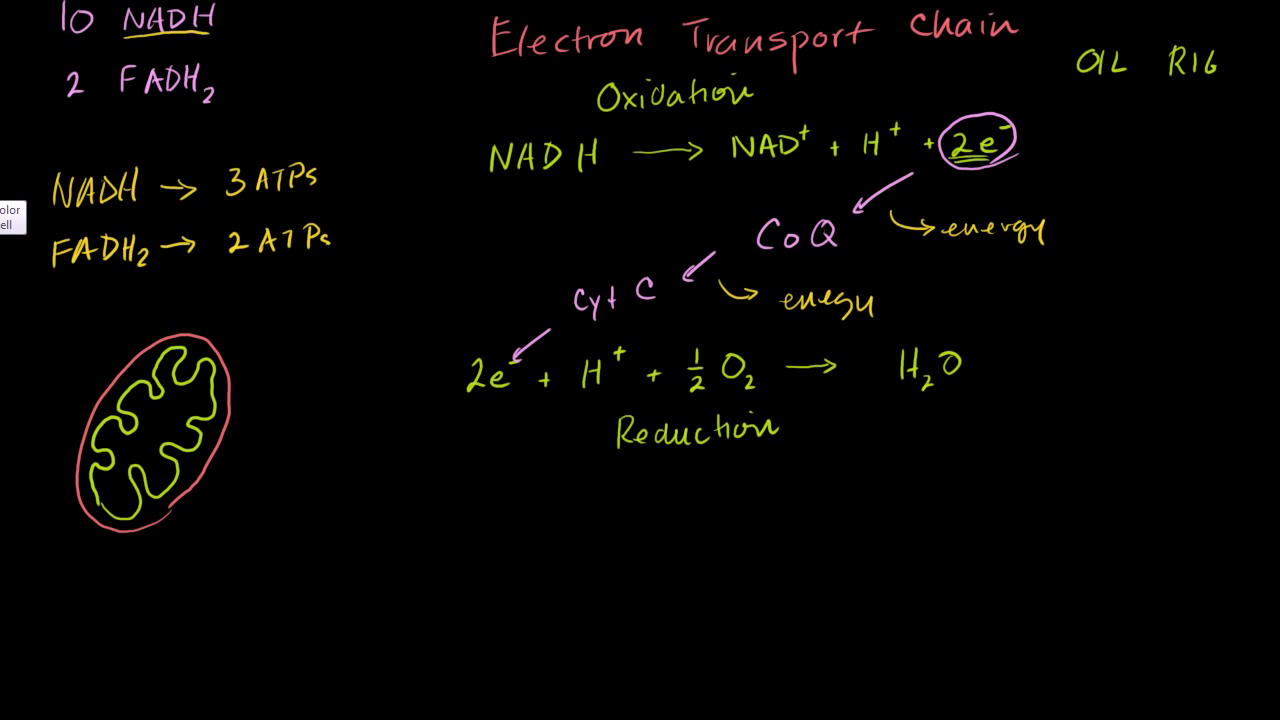 10 NADH
2 FADH₂
NADH → 3 ATPs
FADH₂ → 2 ATPs
olor
ell
Electron Transport Chain
OIL RIG
Oxidation
NADH → NAD⁺ + H⁺ + 2e⁻
CoQ
energy
Cyt C
energy
2e⁻ + H⁺ + ½ O₂ → H₂O
Reduction